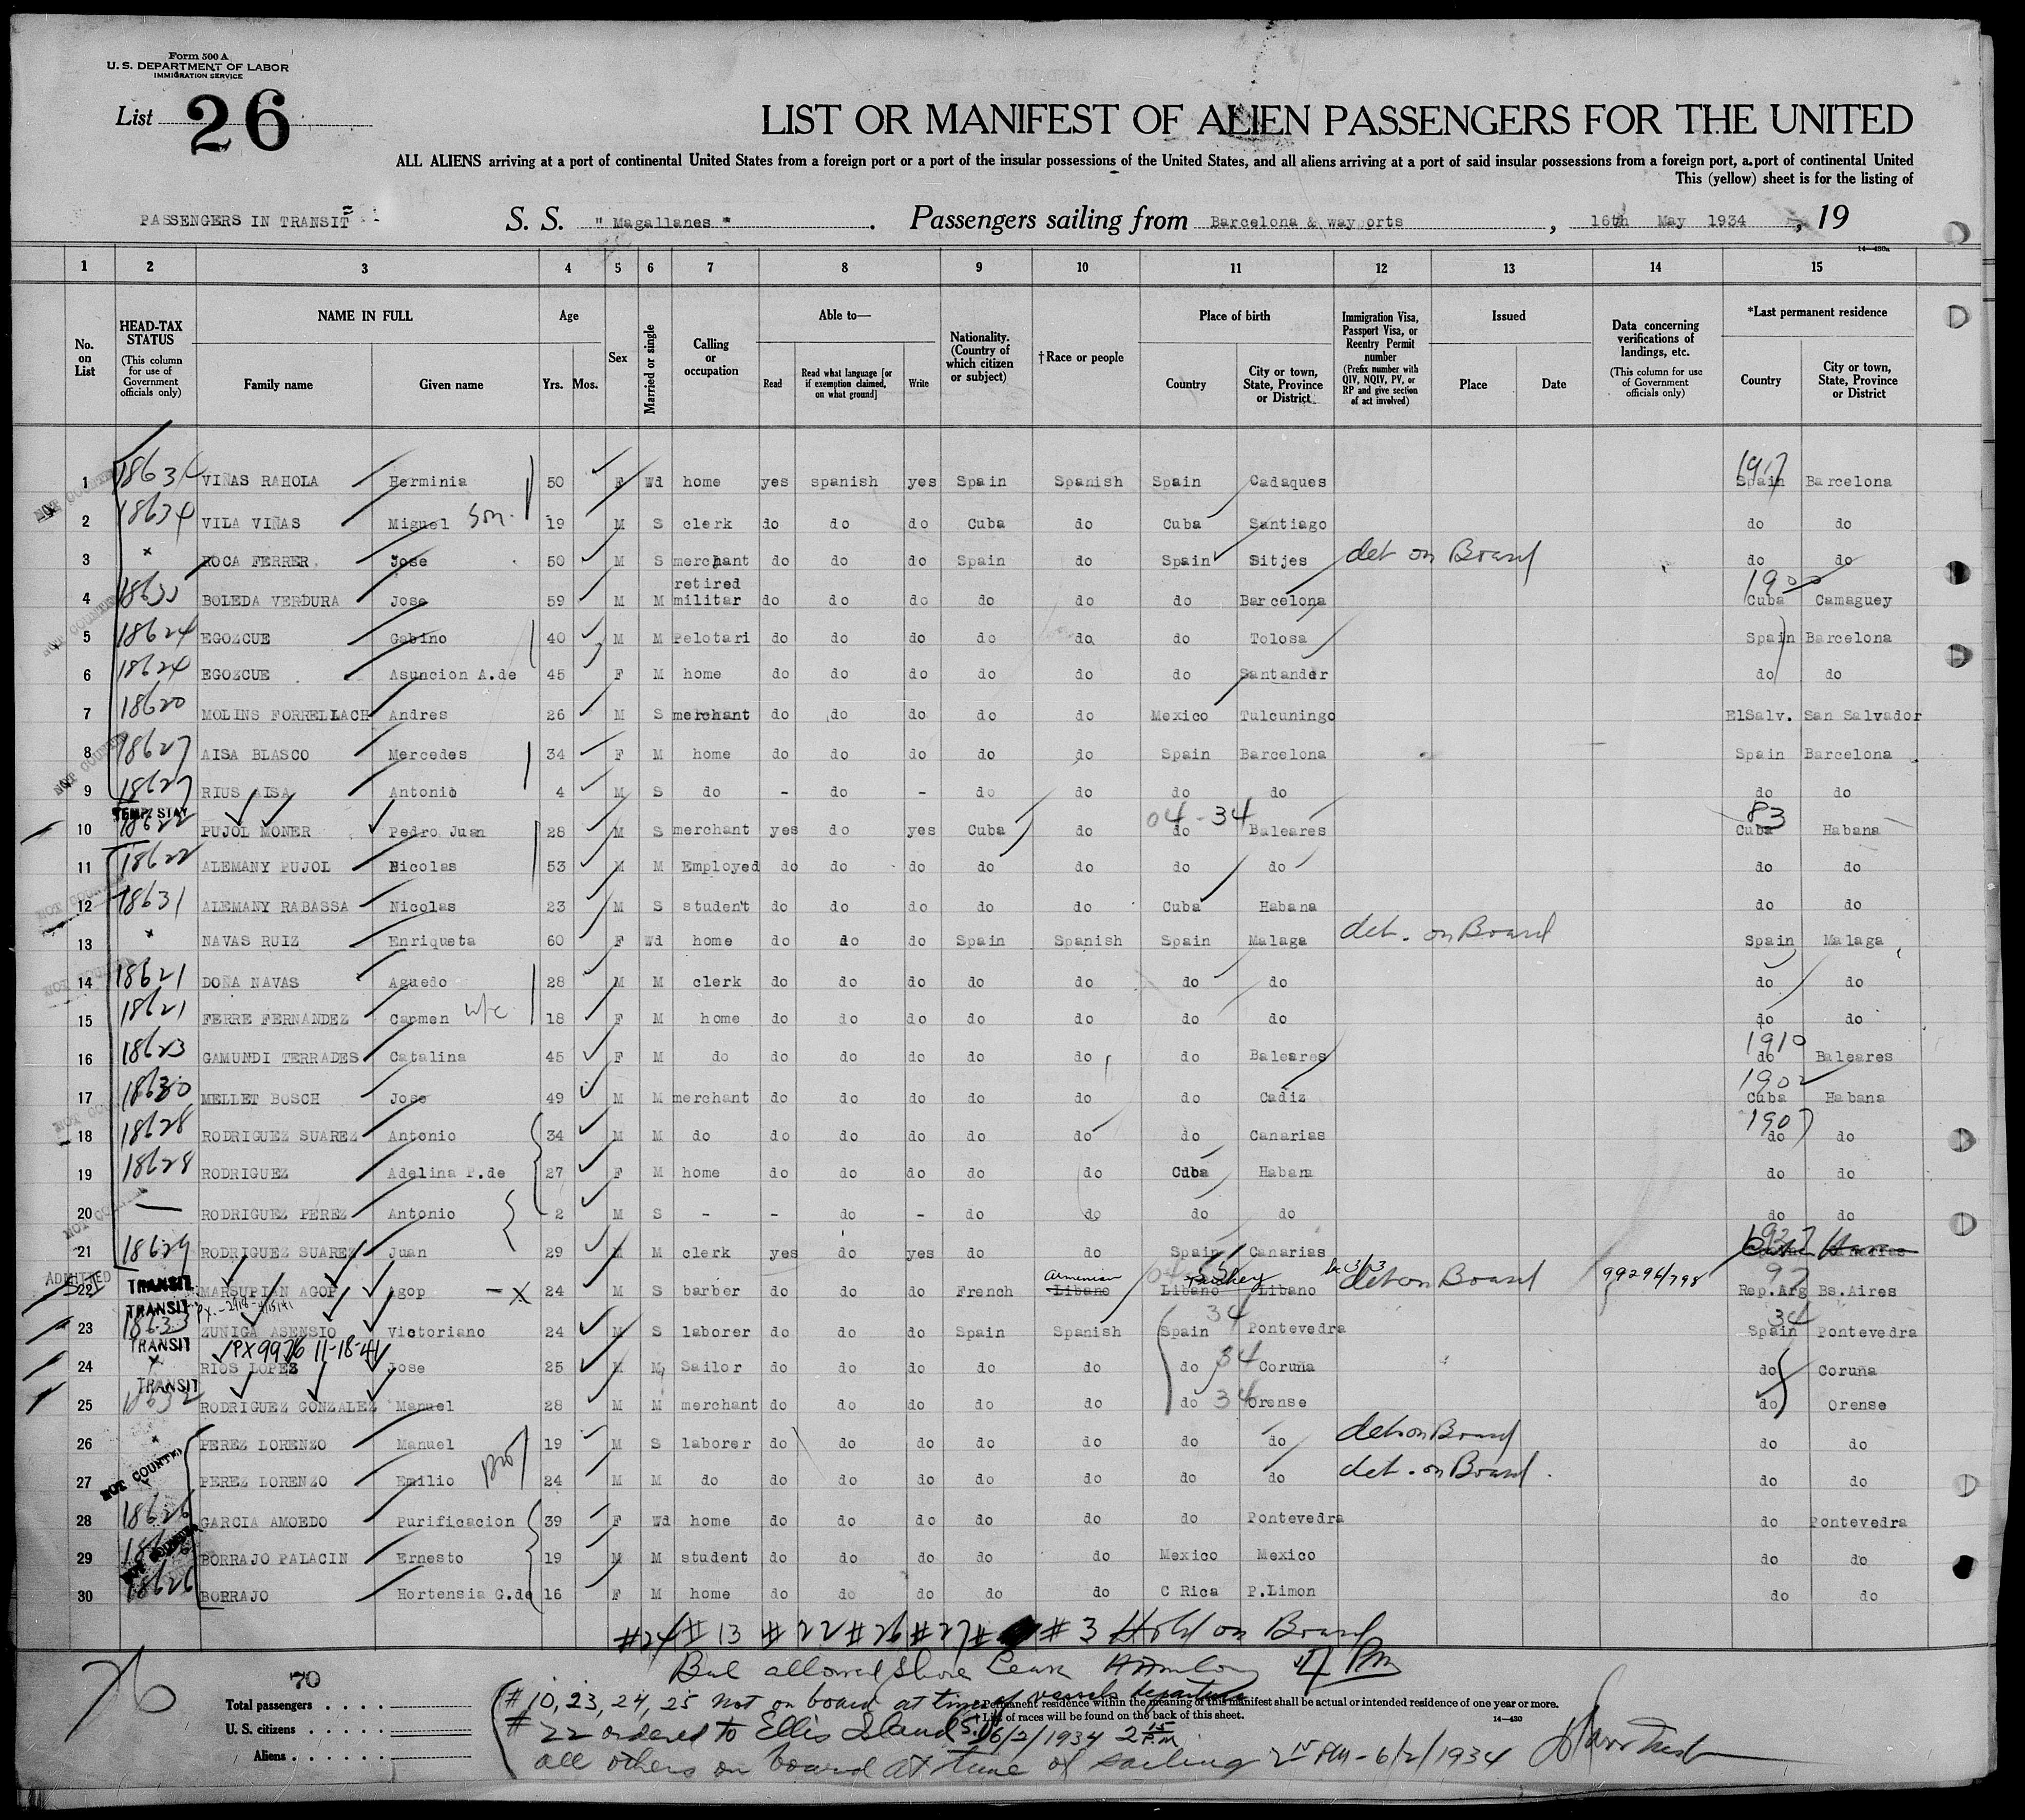 Form 500 A
U. S. DEPARTMENT OF LABOR
IMMIGRATION SERVICE
List 26
LIST OR MANIFEST OF ALIEN PASSENGERS FOR THE UNITED
ALL ALIENS arriving at a port of continental United States from a foreign port or a port of the insular possessions of the United States, and all aliens arriving at a port of said insular possessions from a foreign port, a port of continental United
This (yellow) sheet is for the listing of
PASSENGERS IN TRANSIT S. S. " Magallanes " . Passengers sailing from Barcelona & way orts , 16th May 1934 , 19
14—430a
1 2 3 4 5 6 7 8 9 10 11 12 13 14 15
No. on List
HEAD-TAX STATUS
(This column for use of Government officials only)
NAME IN FULL
Family name Given name
Age
Yrs. Mos.
Sex
Married or single
Calling or occupation
Able to—
Read Read what language [or if exemption claimed, on what ground] Write
Nationality. (Country of which citizen or subject)
†Race or people
Place of birth
Country City or town, State, Province or District
Immigration Visa, Passport Visa, or Reentry Permit number
(Prefix number with QIV, NQIV, PV, or RP and give section of act involved)
Issued
Place Date
Data concerning verifications of landings, etc.
(This column for use of Government officials only)
*Last permanent residence
Country City or town, State, Province or District
1 18634 VIÑAS RAHOLA Herminia 50 F Wd home yes spanish yes Spain Spanish Spain Cadaques 1917 Spain Barcelona
2 18634 VILA VIÑAS Miguel Son. 19 M S clerk do do do Cuba do Cuba Santiago do do
3 x ROCA FERRER Jose 50 M S merchant do do do Spain do Spain Sitjes det on Board do do
4 BOLEDA VERDURA Jose 59 M M retired militar do do do do do do Barcelona 1900 Cuba Camaguey
5 18624 EGOZCUE Gabino 40 M M Pelotari do do do do do do Tolosa Spain Barcelona
6 18624 EGOZCUE Asuncion A.de 45 F M home do do do do do do Santander do do
7 18620 MOLINS FORRELLACH Andres 26 M S merchant do do do do do Mexico Tulcuningo ElSalv. San Salvador
8 18627 AISA BLASCO Mercedes 34 F M home do do do do do Spain Barcelona Spain Barcelona
9 18627 RIUS AISA Antonio 4 M S do - do - do do do do do do
TEMP. STAY
10 18622 PUJOL MONER Pedro Juan 28 M S merchant yes do yes Cuba do 04-34 do Baleares 83 Cuba Habana
11 18622 ALEMANY PUJOL Nicolas 53 M M Employed do do do do do do do do do
12 18631 ALEMANY RABASSA Nicolas 23 M S student do do do do do Cuba Habana do do
13 x NAVAS RUIZ Enriqueta 60 F Wd home do do do Spain Spanish Spain Malaga det. on Board Spain Malaga
14 18621 DOÑA NAVAS Aguedo 28 M M clerk do do do do do do do do do
15 18621 FERRE FERNANDEZ Carmen 18 F M home do do do do do do do do do
16 18623 GAMUNDI TERRADES Catalina 45 F M do do do do do do do Baleares 1910 do Baleares
17 18630 MELLET BOSCH Jose 49 M M merchant do do do do do do Cadiz 1902 Cuba Habana
18 18628 RODRIGUEZ SUAREZ Antonio 34 M M do do do do do do do Canarias 1907 do do
19 18628 RODRIGUEZ Adelina P.de 27 F M home do do do do do Cuba Habana do do
20 — RODRIGUEZ PEREZ Antonio 2 M S - - do - do do do do do do
21 18629 RODRIGUEZ SUAREZ Juan 29 M M clerk yes do yes do do Spain Canarias
ADMITTED
22 TRANSIT MARSUPIAN AGOP Agop -x 24 M S barber do do do French Armenian Libano Turkey Libano Libano det on Board 99296/798 Rep.Arg Bs.Aires
TRANSIT
23 18633 ZUNIGA ASENSIO Victoriano 24 M S laborer do do do Spain Spanish Spain 34 Pontevedra 34 Spain Pontevedra
TRANSIT PX9976 11-18-41
24 x RIOS LOPEZ Jose 25 M M Sailor do do do do do do 34 Coruña do Coruña
TRANSIT
25 18632 RODRIGUEZ GONZALEZ Manuel 28 M M merchant do do do do do do 34 Orense do Orense
26 x PEREZ LORENZO Manuel 19 M S laborer do do do do do do do det on Board do do
NOT COUNTED
27 PEREZ LORENZO Emilio bro 24 M M do do do do do do do do det. on Board. do do
28 18626 GARCIA AMOEDO Purificacion 39 F Wd home do do do do do do Pontevedra do Pontevedra
29 BORRAJO PALACIN Ernesto 19 M M student do do do do do Mexico Mexico do do
30 18626 BORRAJO Hortensia G.de 16 F M home do do do do do C Rica P.Limon do do
#24 # 13 # 22 # 26 # 27 # 3 Hold on Board
But allowed Shore Leave
76
70
Total passengers
U. S. citizens
Aliens
# 10, 23, 24, 25 not on board at time of vessels departure
# 22 ordered to Ellis Island 6/2/1934 2 15 P.M.
all others on board at time of sailing 2 15 PM - 6/2/1934
* Permanent residence within the meaning of this manifest shall be actual or intended residence of one year or more.
† List of races will be found on the back of this sheet.
14—430